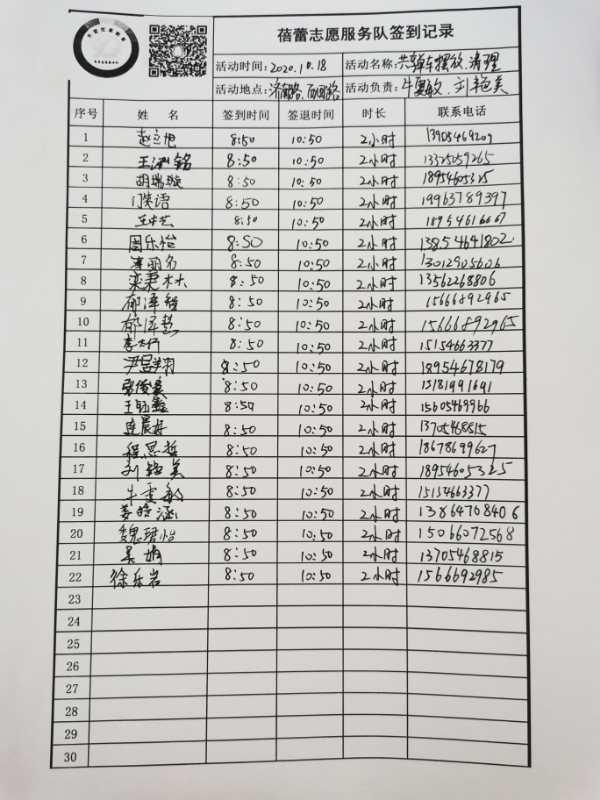 蓓蕾志愿服务队签到记录
活动时间：2020.10.18 活动名称：共享单车摆放、清理
活动地点： 活动负责：牛雯敏、刘艳美
序号 姓 名 签到时间 签退时间 时长 联系电话
1 8:50 10:50 2小时 13905469209
2 8:50 10:50 2小时 13325059265
3 胡瑞璇 8:50 10:50 2小时 18954605325
4 闫笑语 8:50 10:50 2小时 19963789397
5 8:50 10:50 2小时 18954616667
6 周乐怡 8:50 10:50 2小时 13854641802
7 8:50 10:50 2小时 13012905606
8 栾秉林 8:50 10:50 2小时 13562268806
9 8:50 10:50 2小时 15666892965
10 8:50 10:50 2小时 15666892965
11 8:50 10:50 2小时 15154663377
12 尹昱翔 8:50 10:50 2小时 18954678179
13 8:50 10:50 2小时 15181991691
14 8:50 10:50 2小时 15605469966
15 8:50 10:50 2小时 13705468815
16 程思哲 8:50 10:50 2小时 18678699627
17 刘艳美 8:50 10:50 2小时 18954605325
18 牛雯敏 8:50 10:50 2小时 15154663377
19 姜晗涵 8:50 10:50 2小时 13864708406
20 魏珺怡 8:50 10:50 2小时 15066072568
21 吴娟 8:50 10:50 2小时 13705468815
22 徐乐岩 8:50 10:50 2小时 1566692985
23
24
25
26
27
28
29
30